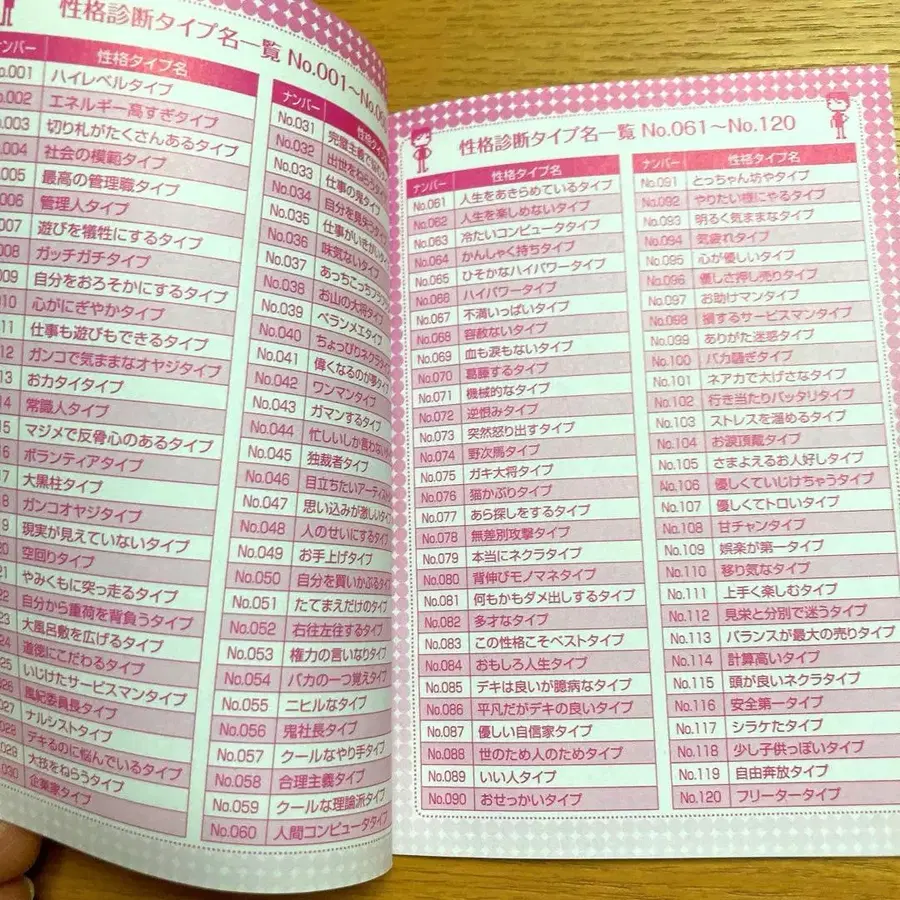 性格診断タイプ名一覧 No.001〜No.0
ナンバー 性格タイプ名
o.001 ハイレベルタイプ
o.002 エネルギー高すぎタイプ
.003 切り札がたくさんあるタイプ
.004 社会の模範タイプ
005 最高の管理職タイプ
006 管理人タイプ
007 遊びを犠牲にするタイプ
008 ガッチガチタイプ
009 自分をおろそかにするタイプ
010 心がにぎやかタイプ
11 仕事も遊びもできるタイプ
12 ガンコで気ままなオヤジタイプ
13 おカタイタイプ
14 常識人タイプ
15 マジメで反骨心のあるタイプ
16 ボランティアタイプ
17 大黒柱タイプ
18 ガンコオヤジタイプ
19 現実が見えていないタイプ
20 空回りタイプ
21 やみくもに突っ走るタイプ
22 自分から重荷を背負うタイプ
23 大風呂敷を広げるタイプ
24 道徳にこだわるタイプ
025 いじけたサービスマンタイプ
026 風紀委員長タイプ
027 ナルシストタイプ
028 デキるのに悩んでいるタイプ
029 大技をねらうタイプ
.030 企業家タイプ
ナンバー 性格タイ
No.031 完璧主義で
No.032 出世をねらうタイ
No.033 仕事の鬼タイプ
No.034 自分を見失うタイ
No.035 仕事がいきがいタイ
No.036 味気ないタイプ
No.037 あっちこっち
No.038 お山の大将タイプ
No.039 ベランメエタイプ
No.040 ちょっぴりネクラタイ
No.041 偉くなるのが夢タイプ
No.042 ワンマンタイプ
No.043 ガマンするタイプ
No.044 忙しいしか言わない
No.045 独裁者タイプ
No.046 目立ちたいアーティスト
No.047 思い込みが激しいタイプ
No.048 人のせいにするタイプ
No.049 お手上げタイプ
No.050 自分を買いかぶるタイプ
No.051 たてまえだけのタイプ
No.052 右往左往するタイプ
No.053 権力の言いなりタイプ
No.054 バカの一つ覚えタイプ
No.055 ニヒルなタイプ
No.056 鬼社長タイプ
No.057 クールなやり手タイプ
No.058 合理主義タイプ
No.059 クールな理論派タイプ
No.060 人間コンピュータタイプ
性格診断タイプ名一覧 No.061〜No.120
ナンバー 性格タイプ名
No.061 人生をあきらめているタイプ
No.062 人生を楽しめないタイプ
No.063 冷たいコンピュータタイプ
No.064 かんしゃく持ちタイプ
No.065 ひそかなハイパワータイプ
No.066 ハイパワータイプ
No.067 不満いっぱいタイプ
No.068 容赦ないタイプ
No.069 血も涙もないタイプ
No.070 葛藤するタイプ
No.071 機械的なタイプ
No.072 逆恨みタイプ
No.073 突然怒り出すタイプ
No.074 野次馬タイプ
No.075 ガキ大将タイプ
No.076 猫かぶりタイプ
No.077 あら探しをするタイプ
No.078 無差別攻撃タイプ
No.079 本当にネクラタイプ
No.080 背伸びモノマネタイプ
No.081 何もかもダメ出しするタイプ
No.082 多才なタイプ
No.083 この性格こそベストタイプ
No.084 おもしろ人生タイプ
No.085 デキは良いが臆病なタイプ
No.086 平凡だがデキの良いタイプ
No.087 優しい自信家タイプ
No.088 世のため人のためタイプ
No.089 いい人タイプ
No.090 おせっかいタイプ
ナンバー 性格タイプ名
No.091 とっちゃん坊やタイプ
No.092 やりたい様にやるタイプ
No.093 明るく気ままなタイプ
No.094 気疲れタイプ
No.095 心が優しいタイプ
No.096 優しさ押し売りタイプ
No.097 お助けマンタイプ
No.098 損するサービスマンタイプ
No.099 ありがた迷惑タイプ
No.100 バカ騒ぎタイプ
No.101 ネアカで大げさなタイプ
No.102 行き当たりバッタリタイプ
No.103 ストレスを溜めるタイプ
No.104 お涙頂戴タイプ
No.105 さまよえるお人好しタイプ
No.106 優しくていじけちゃうタイプ
No.107 優しくてトロいタイプ
No.108 甘チャンタイプ
No.109 娯楽が第一タイプ
No.110 移り気なタイプ
No.111 上手く楽しむタイプ
No.112 見栄と分別で迷うタイプ
No.113 バランスが最大の売りタイプ
No.114 計算高いタイプ
No.115 頭が良いネクラタイプ
No.116 安全第一タイプ
No.117 シラケたタイプ
No.118 少し子供っぽいタイプ
No.119 自由奔放タイプ
No.120 フリータータイプ